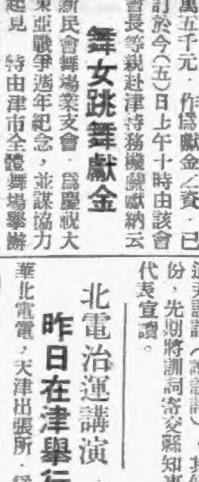 萬五千元．作爲獻金之費．已
訂於今（五）日上午十時由該會
會長等親赴津特務機關獻納云
舞女跳舞獻金
新民會舞場業支會．爲慶祝大
東亞戰爭週年紀念，並謀協力
起見．特由津市全體舞場舉辦
份，先期將訓詞寄交縣知事
代表宣讀。
北電治運講演
昨日在津舉行
華北電電，天津出張所．